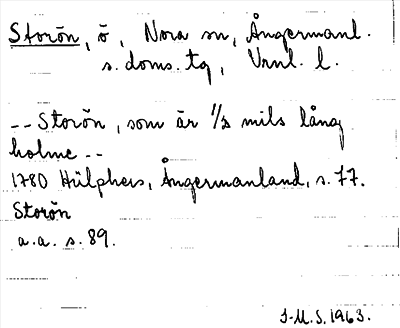 Storön, ö, Nora sn, Ångermanl.
s. doms. tg, Vrnl. l.
-- Storön, som är 1/2 mils lång
holme --
1780 Hülphers, Ångermanland, s. 77.
Storön
a.a. s. 89.
J-M.S. 1963.